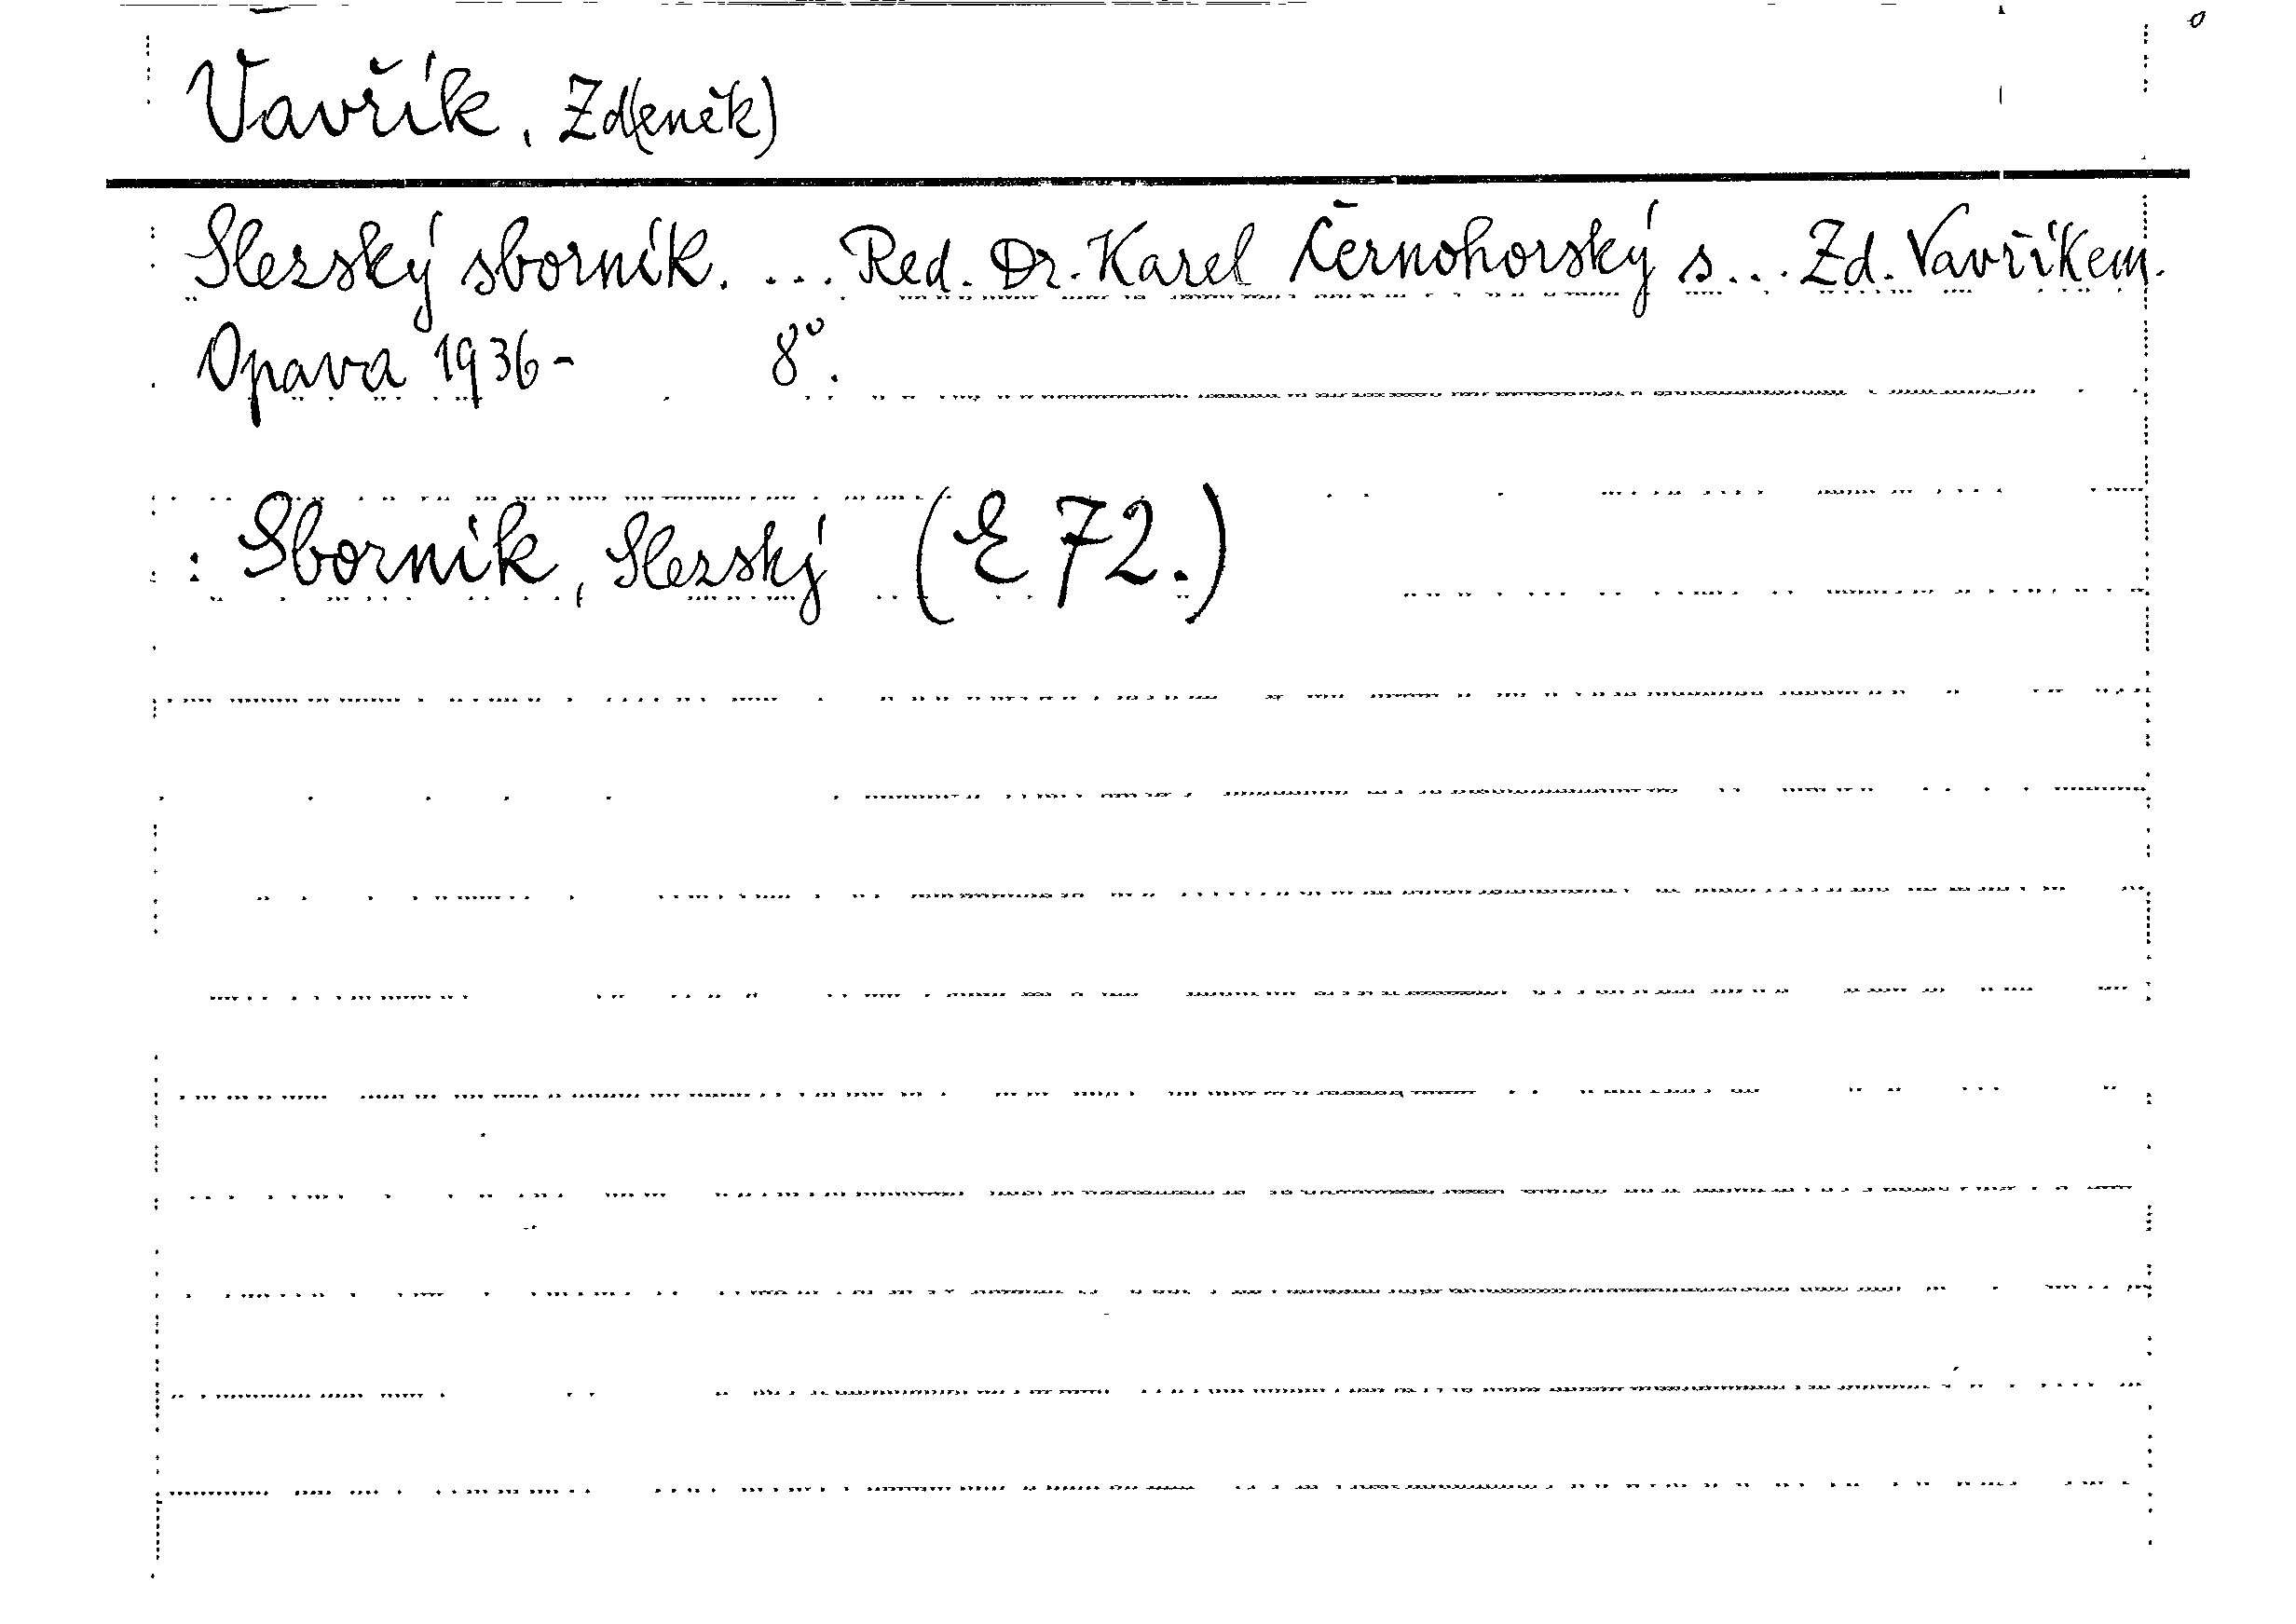 Vavřík, Zd(eněk)
Slezský sborník. ... Red. Dr. Karel Černohorský s... Zd. Vavříkem.
Opava 1936- 8°.
: Sborník, Slezský (E 72.)